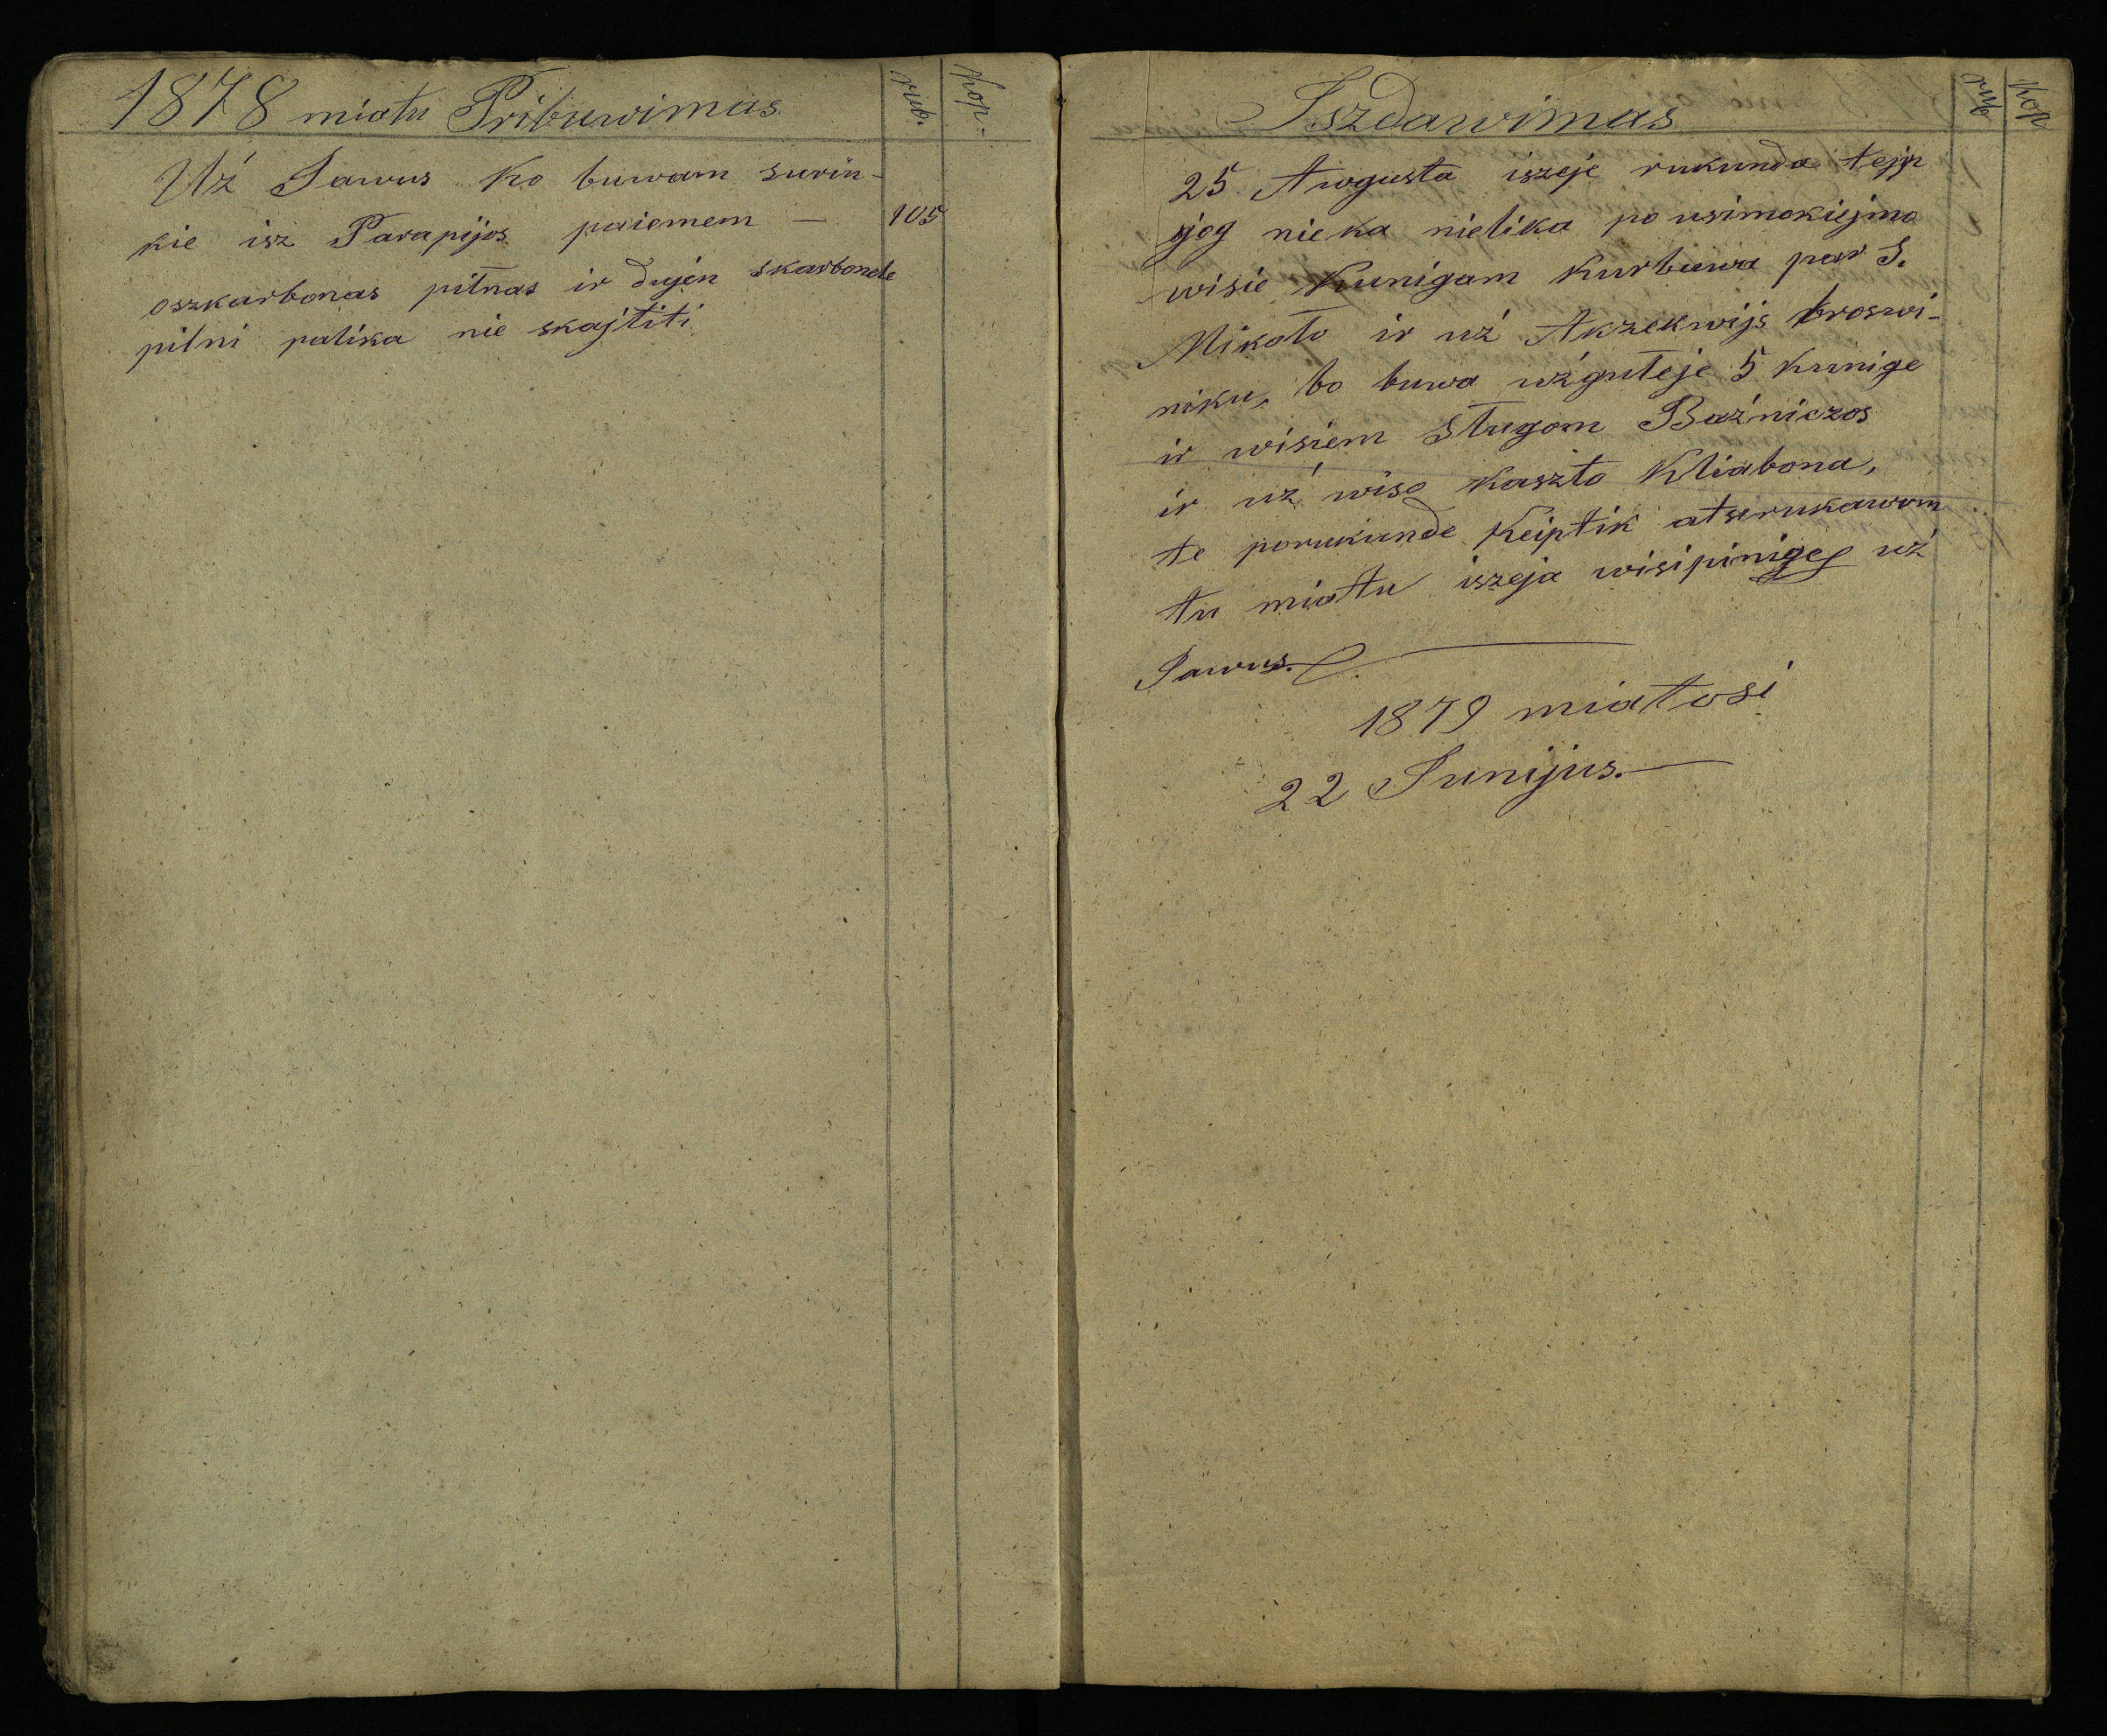 1878 miatu Pribuwimas rub. kop.
Uż Jawus ko buwam surin-
kie isz Parapijos paiemem — 105
oszkarbonas piłnas ir dujen skarbonele
pilni palika nie skajtiti
Iszdawimas rub kop
25. Awgusta iszeje rukunda tejp
jog nieka nielika po usimokiejmo
wisie Kunigam kurbuwa par S.
Mikoło ir uż Akzekwijs broswi-
niku, bo buwa użgułeje 5 kunige
ir wisiem Sługom Bażniczos
ir uż wiso kaszto Kliabona,
te porukunde Keiptik atserukawom
tu miatu iszeja wisipinige uż
Jawus.
1879 miatosi
22 Junijus.—